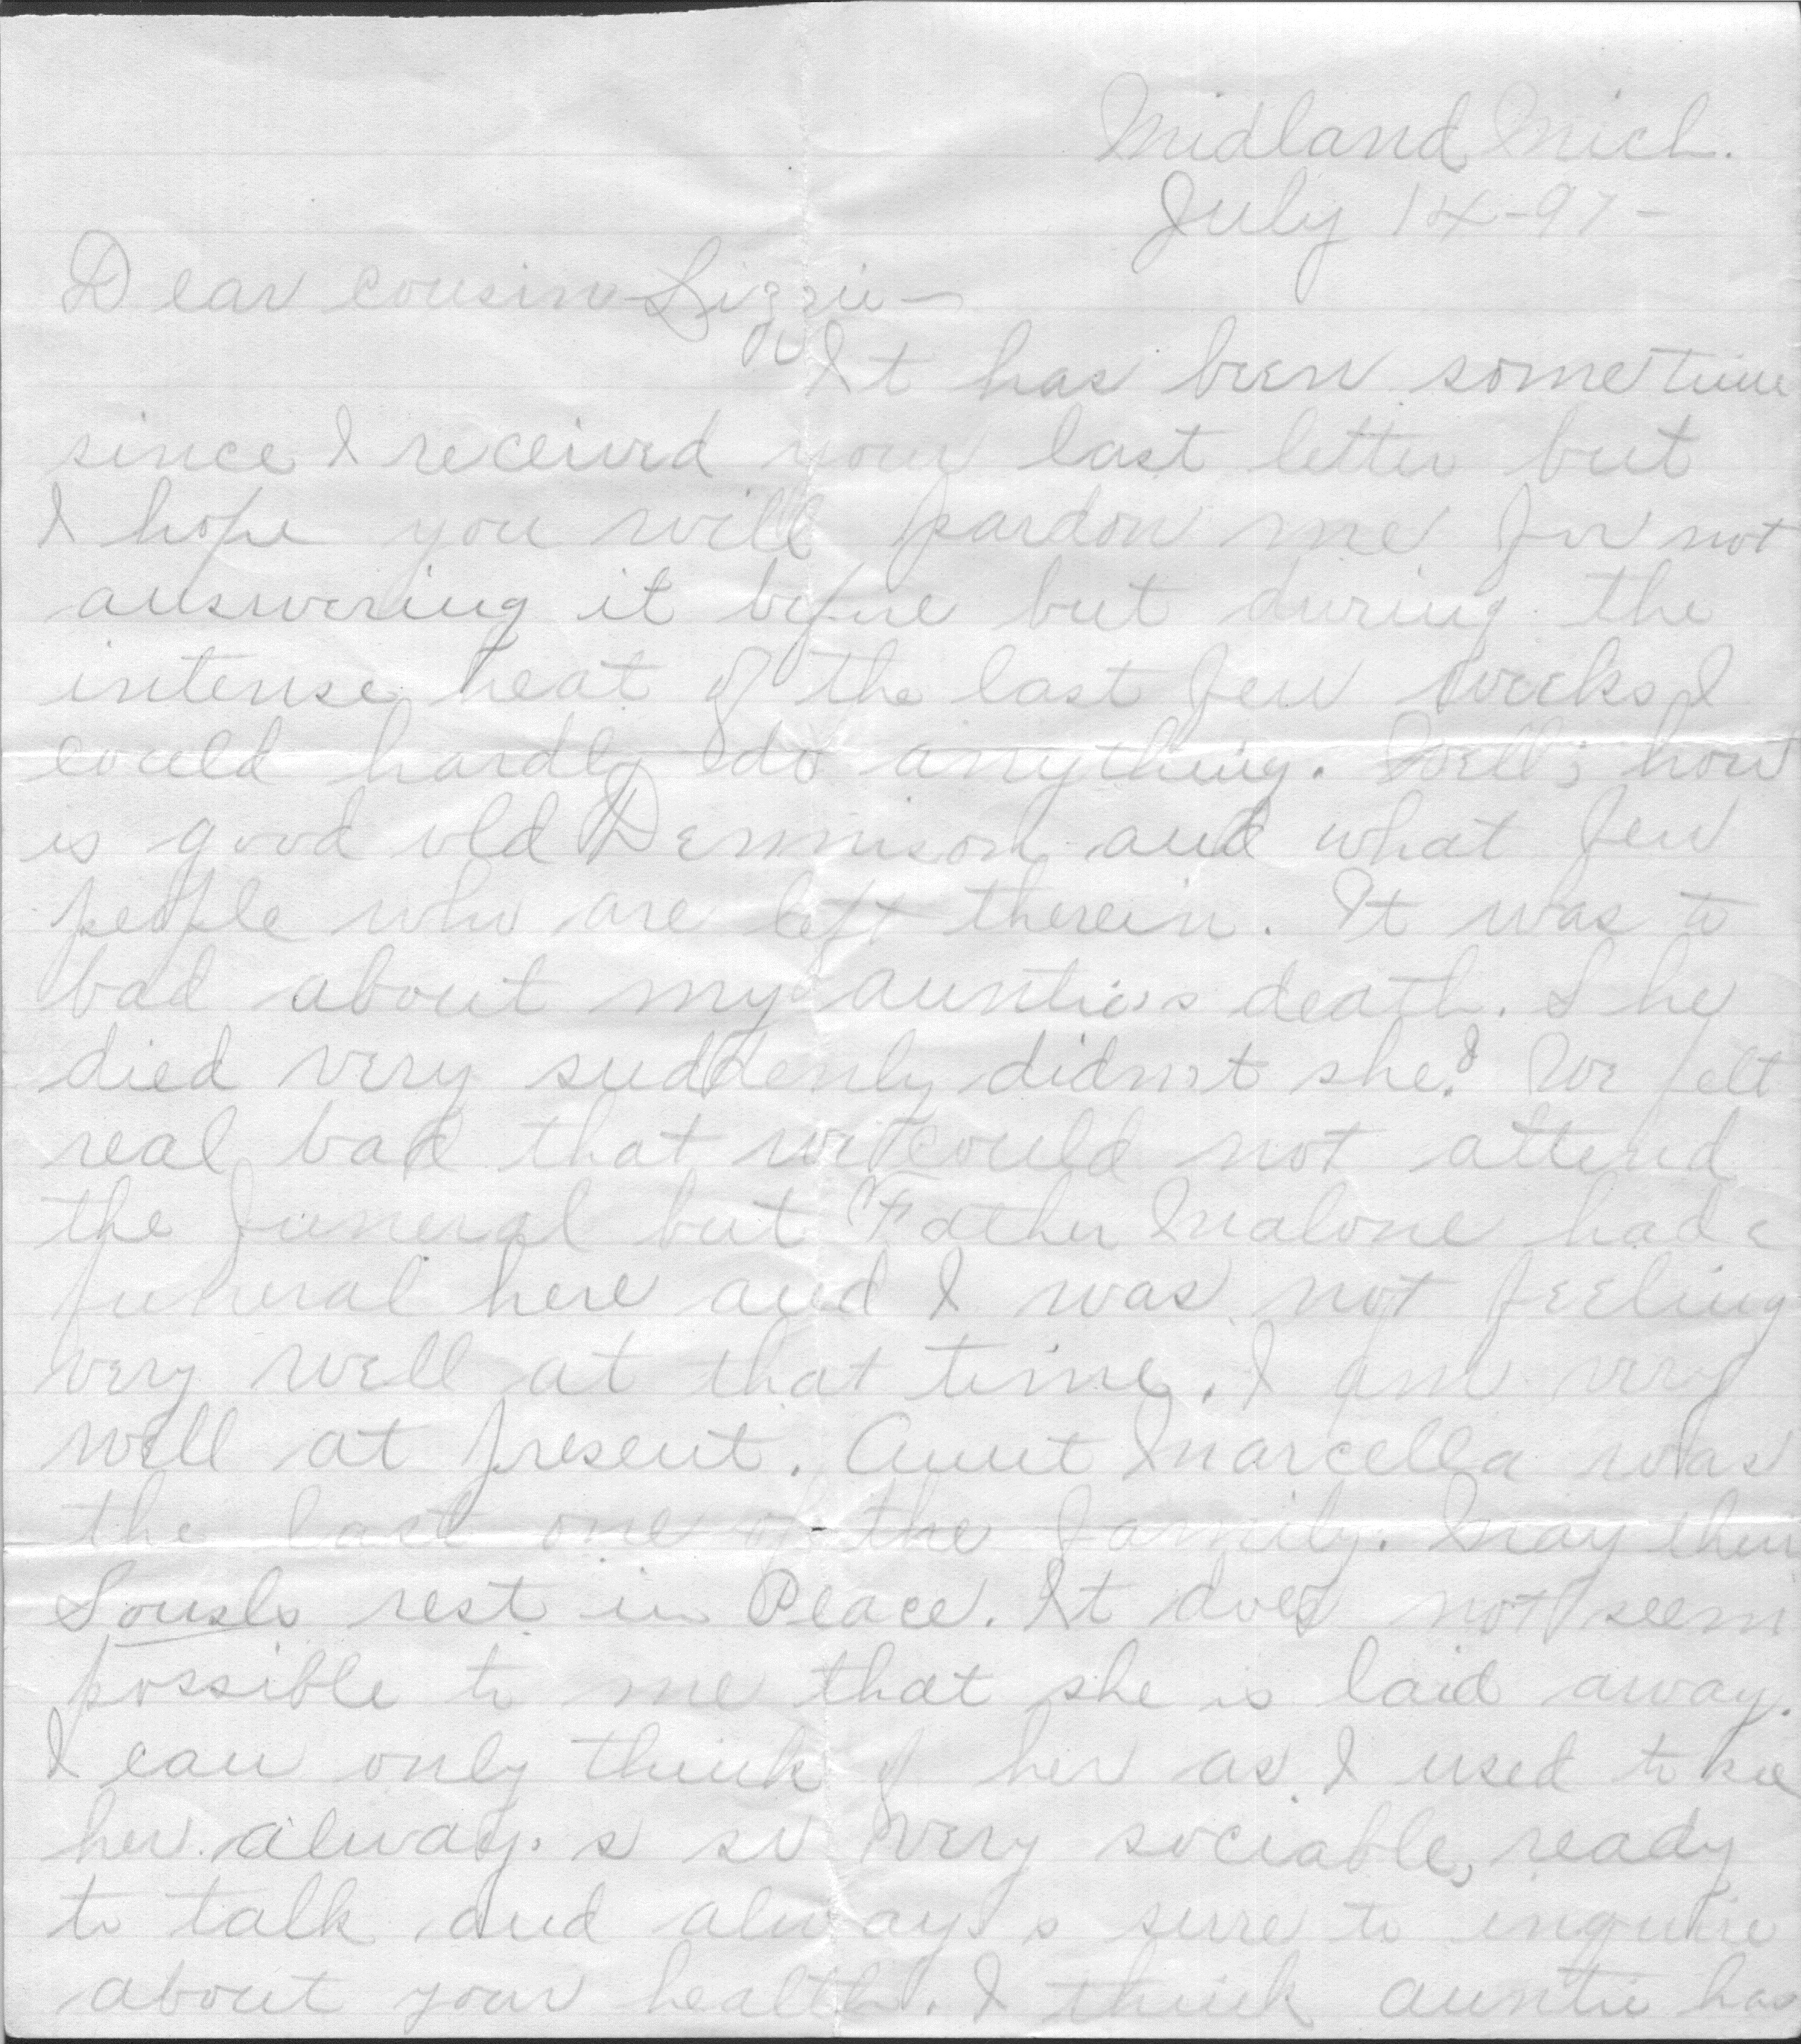 Midland Mich.
July 14-97-
Dear cousin Lizzie-
It has been sometime
since I received your last letter but
I hope you will pardon me for not
answering it before but during the
intense heat of the last few weeks I
could hardly do anything. Well; how
is good old Dennison and what few
people who are left therein. It was to
bad about my auntie's death. She
died very suddenly didn't she? We felt
real bad that we could not attend
the funeral but Father Malone had a
funeral here and I was not feeling
very well at that time. I am very
well at present. Aunt Marcella was
the last one of the family. May their
Souls rest in Peace. It does not seem
possible to me that she is laid away.
I can only think of her as I used to see
her. always so very sociable, ready
to talk and always sure to inquire
about your health. I think auntie has